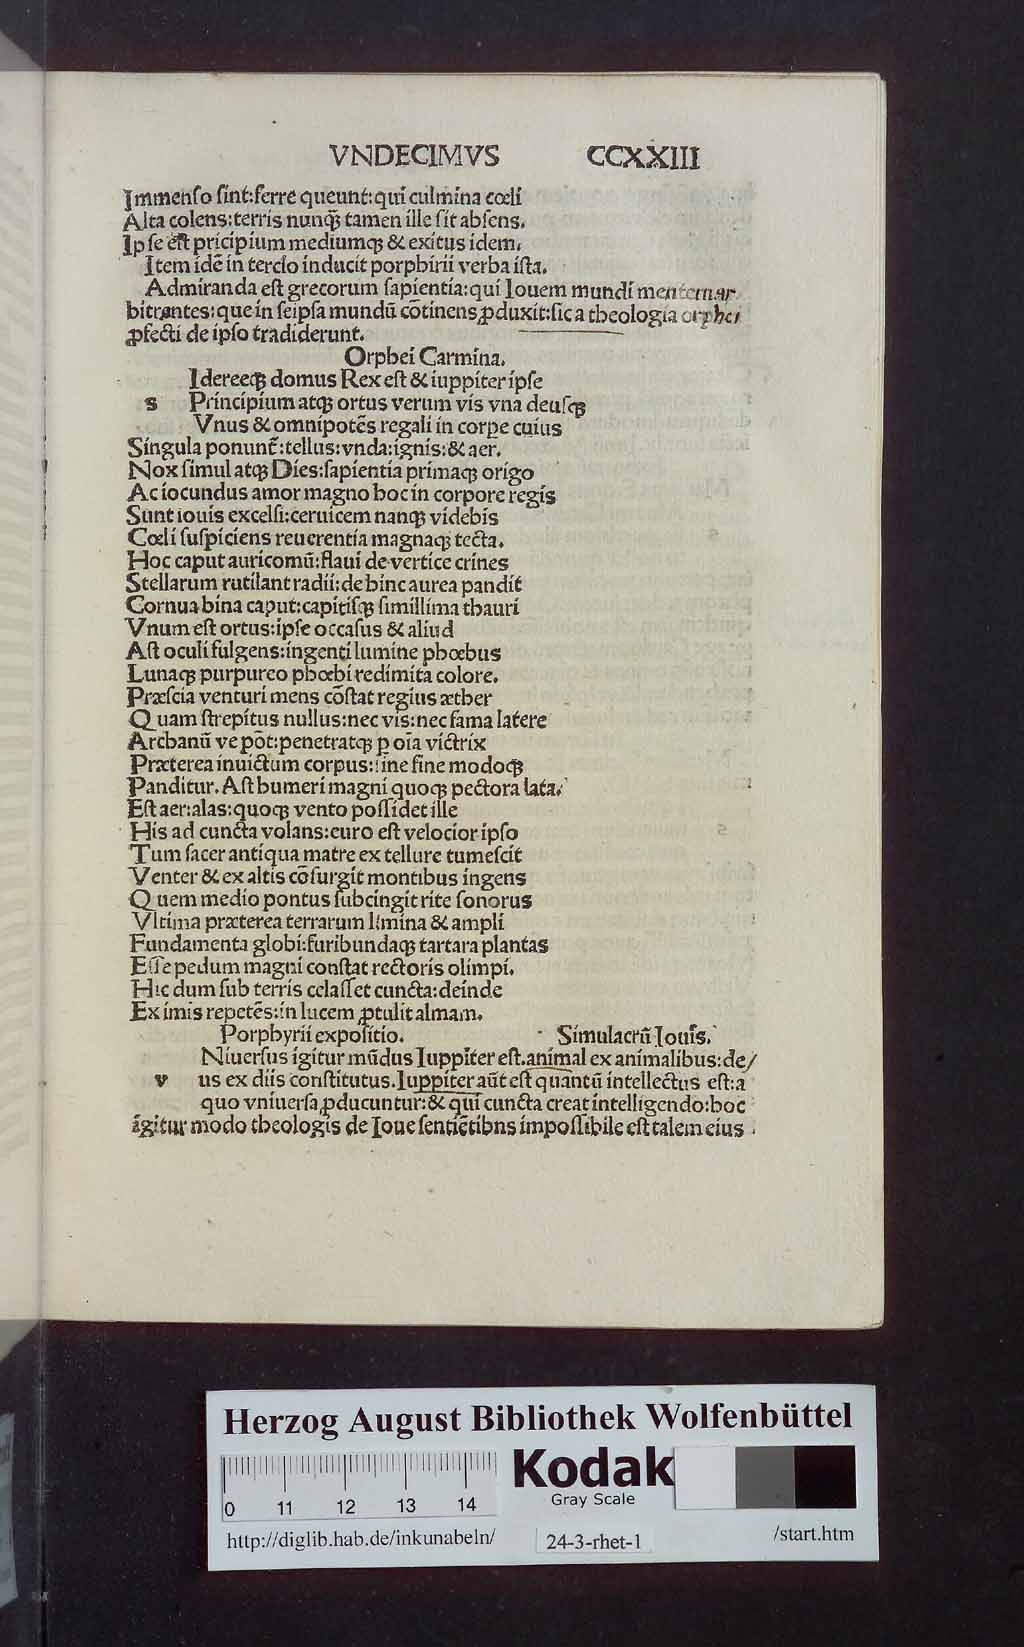 VNDECIMVS CCXXIII
Immenſo ſint:ferre queunt:qui culmina cœli
Alta colens:terris nunꝙ̃ tamen ille ſit abſens.
Ipſe eſt pricipium mediumqꝫ & exitus idem.
Item idē in tercio inducit porphirii verba iſta.
Admiranda eſt grecorum ſapientia:qui Iouem mundi mentem ar
bitrantes:que in ſeipſa mundū cōtinens ꝓduxit:ſic a theologia orphei
ꝓfecti de ipſo tradiderunt.
Orphei Carmina.
Idereeqꝫ domus Rex eſt & iuppiter ipſe
s Principium atqꝫ ortus verum vis vna deuſqꝫ
Vnus & omnipotēs regali in corpe cuius
Singula ponunt̃:tellus:vnda:ignis:& aer.
Nox ſimul atqꝫ Dies:ſapientia primaqꝫ origo
Ac iocundus amor magno hoc in corpore regis
Sunt iouis excelſi:ceruicem nanqꝫ videbis
Cœli ſuſpiciens reuerentia magnaqꝫ tecta.
Hoc caput auricomū:flaui de vertice crines
Stellarum rutilant radii:dehinc aurea pandit
Cornua bina caput:capitiſqꝫ ſimillima thauri
Vnum eſt ortus:ipſe occaſus & aliud
Aſt oculi fulgens:ingenti lumine phœbus
Lunaqꝫ purpureo phœbi redimita colore.
Præſcia venturi mens cōſtat regius æther
Quam ſtrepitus nullus:nec vis:nec fama latere
Archanū ve pōt:penetratqꝫ p oīa victrix
Præterea inuictum corpus:ſine fine modoqꝫ
Panditur. Aſt humeri magni quoqꝫ pectora lata.
Eſt aer:alas:quoqꝫ vento poſſidet ille
His ad cuncta volans:euro eſt velocior ipſo
Tum ſacer antiqua matre ex tellure tumeſcit
Venter & ex altis cōſurgit montibus ingens
Quem medio pontus ſubcingit rite ſonorus
Vltima præterea terrarum limina & ampli
Fundamenta globi:furibundaqꝫ tartara plantas
Eſſe pedum magni conſtat rectoris olimpi.
Hic dum ſub terris celaſſet cuncta:deinde
Ex imis repetēs:in lucem ꝓtulit almam.
Porphyrii expoſitio. Simulacrū Iouis.
Niuerſus igitur mūdus Iuppiter eſt.animal ex animalibus:de/
v us ex diis conſtitutus.Iuppiter aūt eſt quantū intellectus eſt:a
quo vniuerſa ꝓducuntur:& qui cuncta creat intelligendo:hoc
igitur modo theologis de Ioue ſentiētibns impoſſibile eſt talem eius
Herzog August Bibliothek Wolfenbüttel
Kodak
Gray Scale
0 11 12 13 14
http://diglib.hab.de/inkunabeln/ 24-3-rhet-1 /start.htm